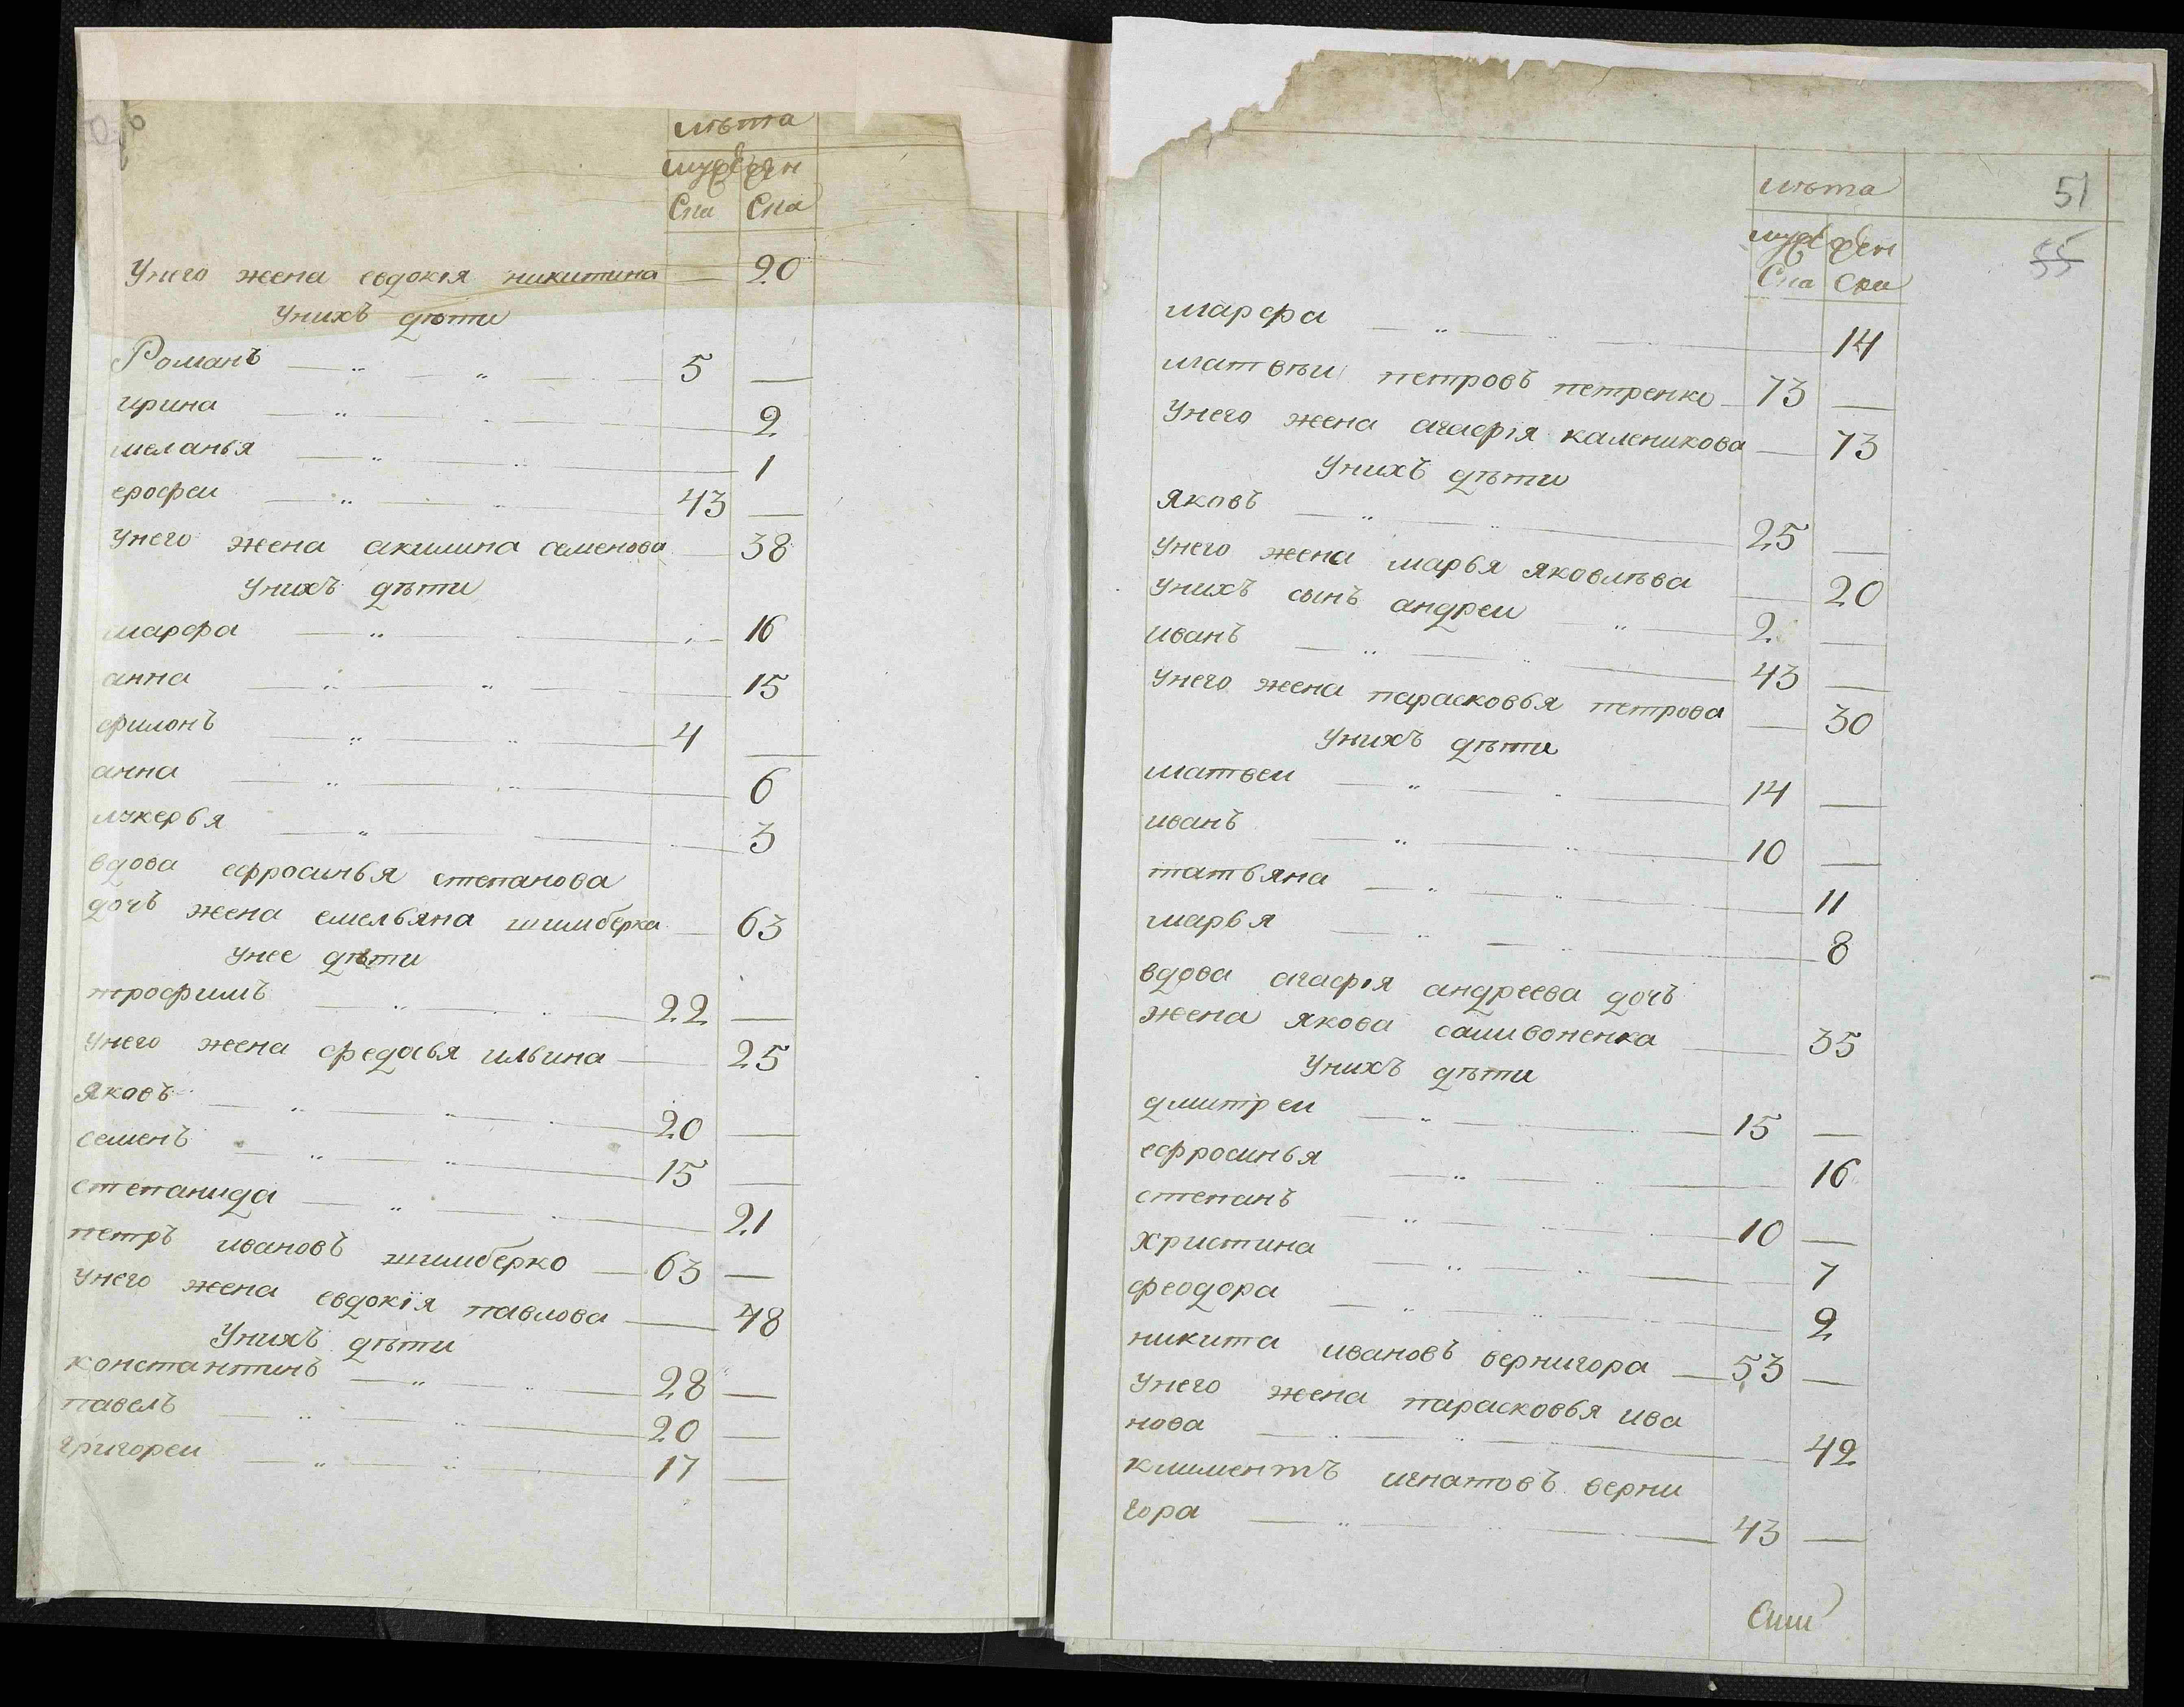 лѣта
муж жен
ска ска
Унего жена евдокія никитина — 20
Унихъ дѣти
Романъ 5 —
ирина 2
меланья 1
ерофеи 43 —
Унего жена акилина семенова — 38
Унихъ дѣти
марфа 16
анна 15
филонъ 4 —
анна 6
лукерья 3
вдова ефросинья степанова
дочъ жена емельяна шимберка — 63
Унее дѣти
трофимъ 22 —
Унего жена федосья ильина — 25
Яковъ 20 —
семенъ 15 —
степанида 21
петръ ивановъ шимберко — 63 —
Унего жена евдокїя павлова — 48
Унихъ дѣти
константинъ 28 —
павелъ 20 —
григореи 17 —
51
лѣта
55
муж жен
Ска ска
марфа 14
матвѣи петровъ петренко — 73 —
Унего жена агафія каленикова — 73
Унихъ дѣти
Яковъ 25 —
Унего жена марья яковлѣва — 20
Унихъ сынъ андреи 2 —
иванъ 43 —
Унего жена парасковья петрова — 30
Унихъ дѣти
матвеи 14 —
иванъ 10 —
татьяна 11
марья 8
вдова агафія андреева дочъ
жена якова саливоненка — 35
Унихъ дѣти
дмитреи 15 —
ефросинья 16
степанъ 10 —
христина 7
феодора 2
никита ивановъ вернигора — 53 —
Унего жена парасковья ива
нова 42
климентъ игнатовъ верни
гора 43 —